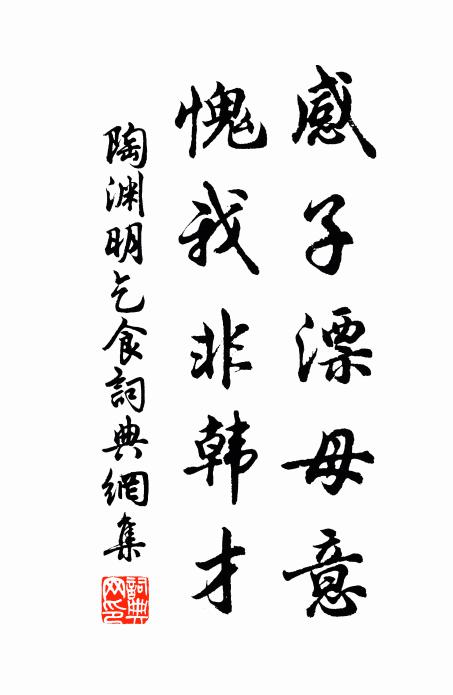 感子漂母意
愧我非韩才
陶渊明乞食詞典網集
詞典
网印